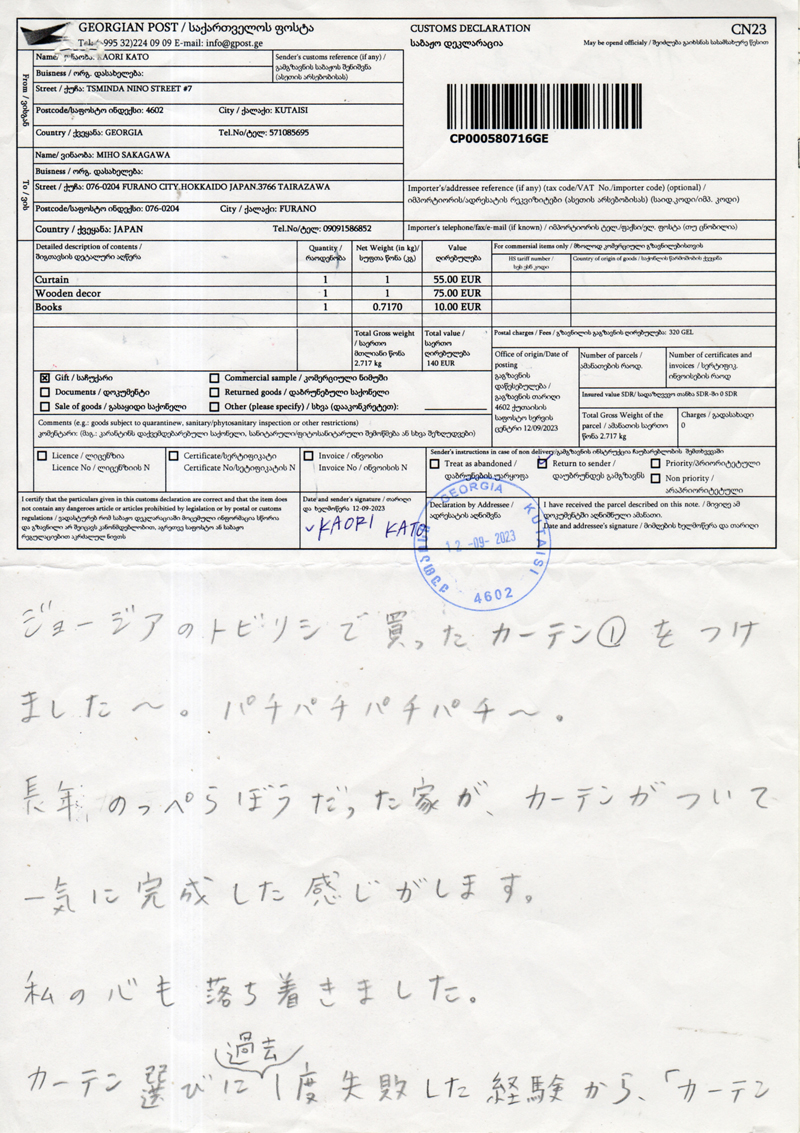 GEORGIAN POST / საქართველოს ფოსტა
CUSTOMS DECLARATION
CN23
995 32)224 09 09 E-mail: info@gpost.ge
საბაჟო დეკლარაცია
May be opend officialy / შეიძლება გაიხსნას სასამსახურე წესით
From / გამგზ.
Name/ ვინაობა: KAORI KATO
Sender's customs reference (if any) /
გამგზავნის საბაჟოს შენიშვნა
(ასეთის არსებობისას)
Buisness / ორგ. დასახელება:
Street / ქუჩა: TSMINDA NINO STREET #7
Postcode/საფოსტო ინდექსი: 4602
City / ქალაქი: KUTAISI
Country / ქვეყანა: GEORGIA
Tel.No/ტელ: 571085695
CP000580716GE
To /
Name/ ვინაობა: MIHO SAKAGAWA
Buisness / ორგ. დასახელება:
Street / ქუჩა: 076-0204 FURANO CITY,HOKKAIDO JAPAN.3766 TAIRAZAWA
Importer's/addressee reference (if any) (tax code/VAT No./importer code) (optional) /
იმპორტიორის/ადრესატის რეკვიზიტები (ასეთის არსებობისას) (საიდ.კოდი/იმპ. კოდი)
Postcode/საფოსტო ინდექსი: 076-0204
City / ქალაქი: FURANO
Country / ქვეყანა: JAPAN
Tel.No/ტელ: 09091586852
Importer's telephone/fax/e-mail (if known) / იმპორტიორის ტელ./ფაქსი/ელ. ფოსტა (თუ ცნობილია)
Detailed description of contents /
შიგთავსის დეტალური აღწერა
Quantity /
რაოდენობა
Net Weight (in kg)/
სუფთა წონა (კგ)
Value
ღირებულება
For commercial items only / მხოლოდ კომერციული გზავნილებისთვის
HS tariff number /
სეს ესნ კოდი
Country of origin of goods / საქონლის წარმოშობის ქვეყანა
Curtain 1 1 55.00 EUR
Wooden decor 1 1 75.00 EUR
Books 1 0.7170 10.00 EUR
Total Gross weight
/ საერთო
მთლიანი წონა
2.717 kg
Total value /
საერთო
ღირებულება
140 EUR
Postal charges / Fees / გზავნილის გაგზავნის ღირებულება: 320 GEL
Office of origin/Date of
posting
გაგზავნის
დაწესებულება /
გაგზავნის თარიღი
4602 ქუთაისის
საფოსტო სერვის
ცენტრი 12/09/2023
Number of parcels /
ამანათების რაოდ.
Number of certificates and
invoices / სერტიფიკ.
ინვოისების რაოდ
Insured value SDR/ სადაზღვევო თანხა SDR-ში 0 SDR
Total Gross Weight of the
parcel / ამანათის საერთო
წონა 2.717 kg
Charges / გადასახადი
0
Gift / საჩუქარი
Commercial sample / კომერციული ნიმუში
Documents / დოკუმენტი
Returned goods / დაბრუნებული საქონელი
Sale of goods / გასაყიდი საქონელი
Other (please specify) / სხვა (დააკონკრეტეთ):
Comments (e.g.: goods subject to quarantinew, sanitary/phytosanitary inspection or other restrictions)
კომენტარი: (მაგ.: კარანტინს დაქვემდებარებული საქონელი, სანიტარული/ფიტოსანიტარული შემოწმება ან სხვა შეზღუდვები)
Licence / ლიცენზია
Licence No / ლიცენზიის N
Certificate/სერტიფიკატი
Certificate No/სერტიფიკატის N
Invoice / ინვოისი
Invoice No / ინვოისის N
Sender's instructions in case of non delivery/გამგზავნის ინსტრუქცია ჩაუბარებლობის შემთხვევაში
Treat as abandoned /
დაბრუნების უარყოფა
Return to sender /
დაუბრუნდეს გამგზავნს
Priority/პრიორიტეტული
Non priority /
არაპრიორიტეტული
I certify that the particulars given in this customs declaration are correct and that the item does
not contain any dangerous article or articles prohibited by legislation or by postal or customs
regulations / ვადასტურებ რომ საბაჟო დეკლარაციაში მოცემული ინფორმაცია სწორია
და გზავნილი არ შეიცავს კანონმდებლობით, აგრეთვე საფოსტო ან საბაჟო
რეგულაციებით აკრძალულ ნივთს
Date and sender's signature / თარიღი
და ხელმოწერა 12-09-2023
KAORI KATO
Declaration by Addressee /
ადრესატის აღნიშვნა
I have received the parcel described on this note. / მივიღე ამ
დოკუმენტში აღნიშნული ამანათი.
Date and addressee's signature / მიმღების ხელმოწერა და თარიღი
GEORGIA KUTAISI
12-09-2023
4602
ジョージアのトビリシで買ったカーテン①をつけ
ました〜。パチパチパチパチ〜。
長年、のっぺらぼうだった家が、カーテンがついて
一気に完成した感じがします。
私の心も落ち着きました。
カーテン選びに過去1度失敗した経験から、「カーテン